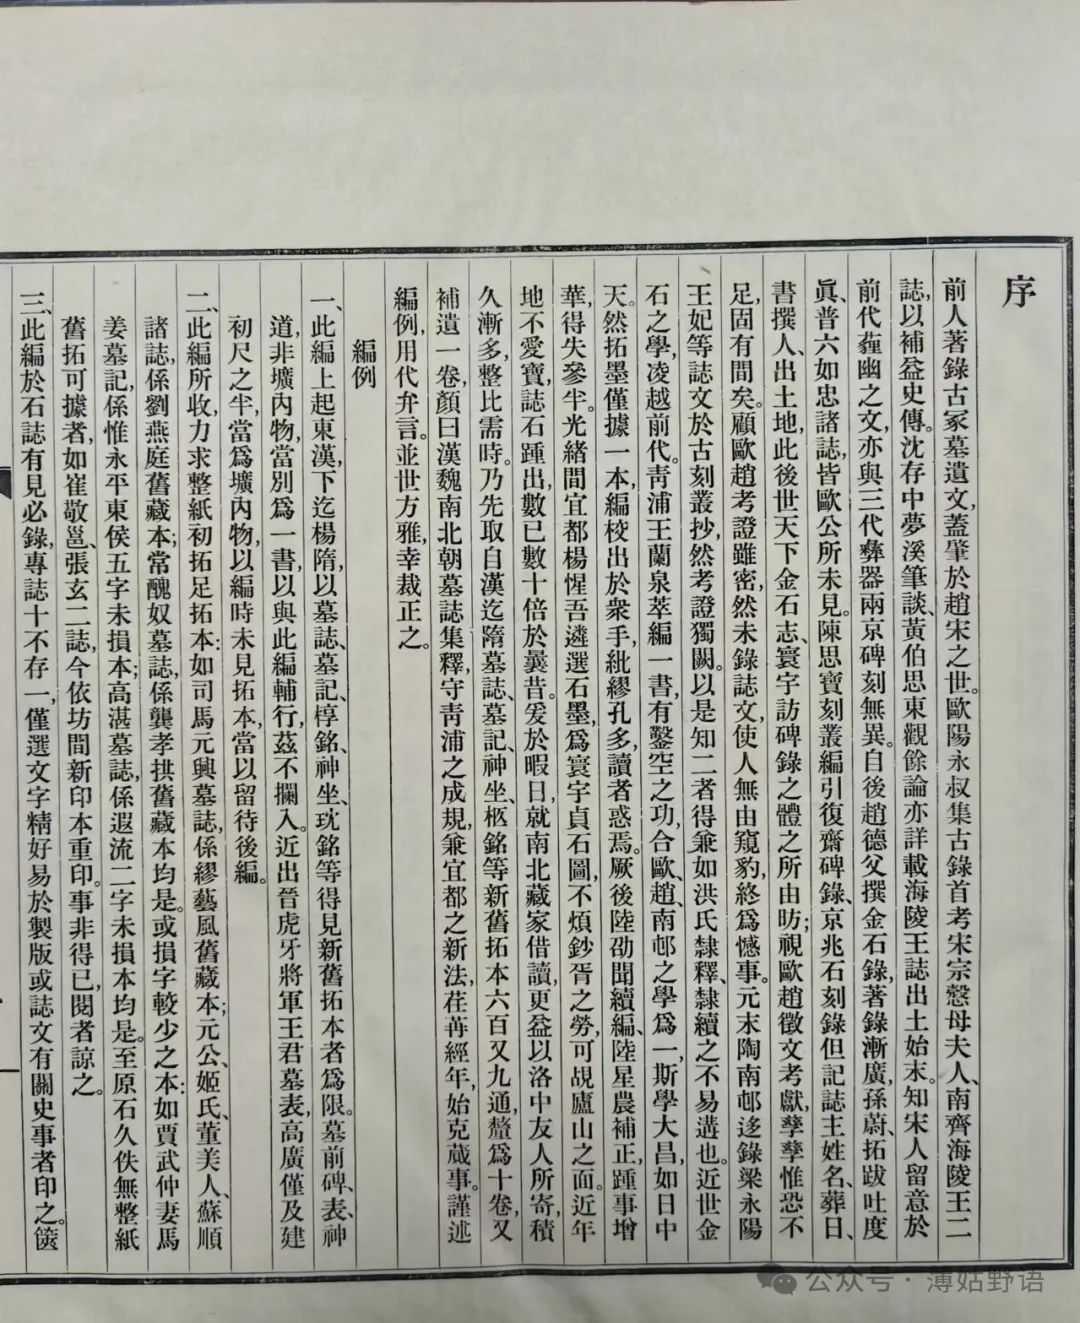 序
前人著錄古冢墓遺文，蓋肇於趙宋之世。歐陽永叔集古錄首考宋宗慤母夫人、南齊海陵王二
誌，以補益史傳。沈存中夢溪筆談、黃伯思東觀餘論亦詳載海陵王誌出土始末。知宋人留意於
前代薶幽之文，亦與三代彝器兩京碑刻無異。自後趙德父撰金石錄，著錄漸廣，孫蔚、拓跋吐度
眞、普六如忠諸誌，皆歐公所未見。陳思寶刻叢編引復齋碑錄、京兆石刻錄但記誌主姓名、葬日、
書撰人、出土地，此後世天下金石志、寰宇訪碑錄之體之所由昉；視歐趙徵文考獻，孳孳惟恐不
足，固有間矣。顧歐趙考證雖密，然未錄誌文，使人無由窺豹，終爲憾事。元末陶南邨迻錄梁永陽
王妃等誌文於古刻叢抄，然考證獨闕。以是知二者得兼如洪氏隸釋、隸續之不易遘也。近世金
石之學，凌越前代。靑浦王蘭泉萃編一書，有鑿空之功，合歐、趙、南邨之學爲一，斯學大昌，如日中
天。然拓墨僅據一本，編校出於衆手，紕繆孔多，讀者惑焉。厥後陸劭聞續編、陸星農補正，踵事增
華，得失參半。光緒間宜都楊惺吾遴選石墨，爲寰宇貞石圖，不煩鈔胥之勞，可覘廬山之面。近年
地不愛寶，誌石踵出，數已數十倍於曩昔。爰於暇日，就南北藏家借讀，更益以洛中友人所寄，積
久漸多，整比需時。乃先取自漢迄隋墓誌、墓記、神坐、柩銘等新舊拓本六百又九通，釐爲十卷，又
補遺一卷，顏曰漢魏南北朝墓誌集釋，守靑浦之成規，兼宜都之新法，荏苒經年，始克蕆事。謹述
編例，用代弁言。並世方雅，幸裁正之。
編例
一、此編上起東漢，下迄楊隋，以墓誌、墓記、椁銘、神坐、玧銘等得見新舊拓本者爲限。墓前碑、表、神
道，非壙內物，當別爲一書，以與此編輔行，茲不攔入。近出晉虎牙將軍王君墓表，高廣僅及建
初尺之半，當爲壙內物，以編時未見拓本，當以留待後編。
二、此編所收，力求整紙初拓足拓本：如司馬元興墓誌，係繆藝風舊藏本；元公、姬氏、董美人、蘇順
諸誌，係劉燕庭舊藏本；常醜奴墓誌，係龔孝拱舊藏本均是。或損字較少之本：如賈武仲妻馬
姜墓記，係惟永平東侯五字未損本；高湛墓誌，係遐流二字未損本均是。至原石久佚無整紙
舊拓可據者，如崔敬邕、張玄二誌，今依坊間新印本重印。事非得已，閱者諒之。
三、此編於石誌有見必錄，專誌十不存一，僅選文字精好易於製版或誌文有關史事者印之。篋
公众号 · 薄姑野语